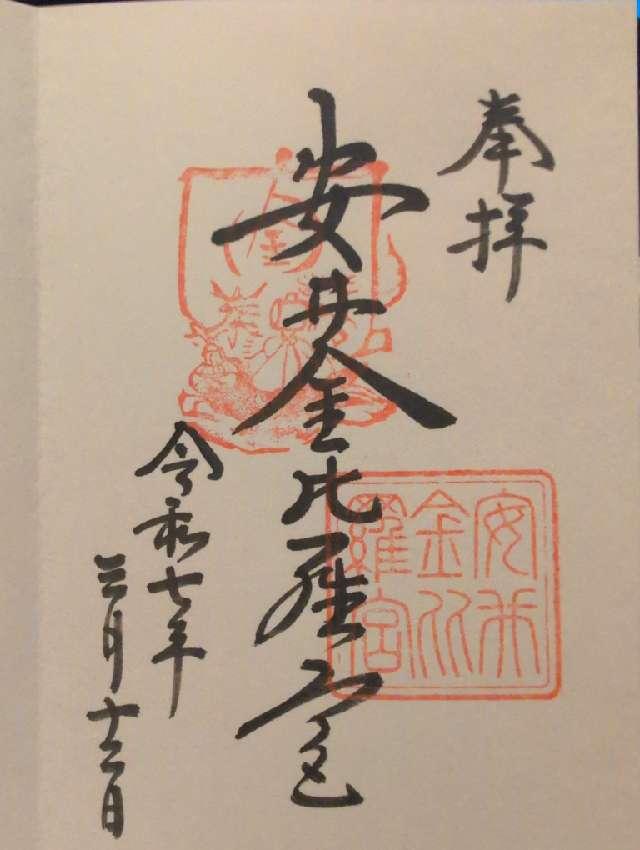 奉拝
安井金比羅宮
令和七年
三月十二日
安井
金比
羅宮